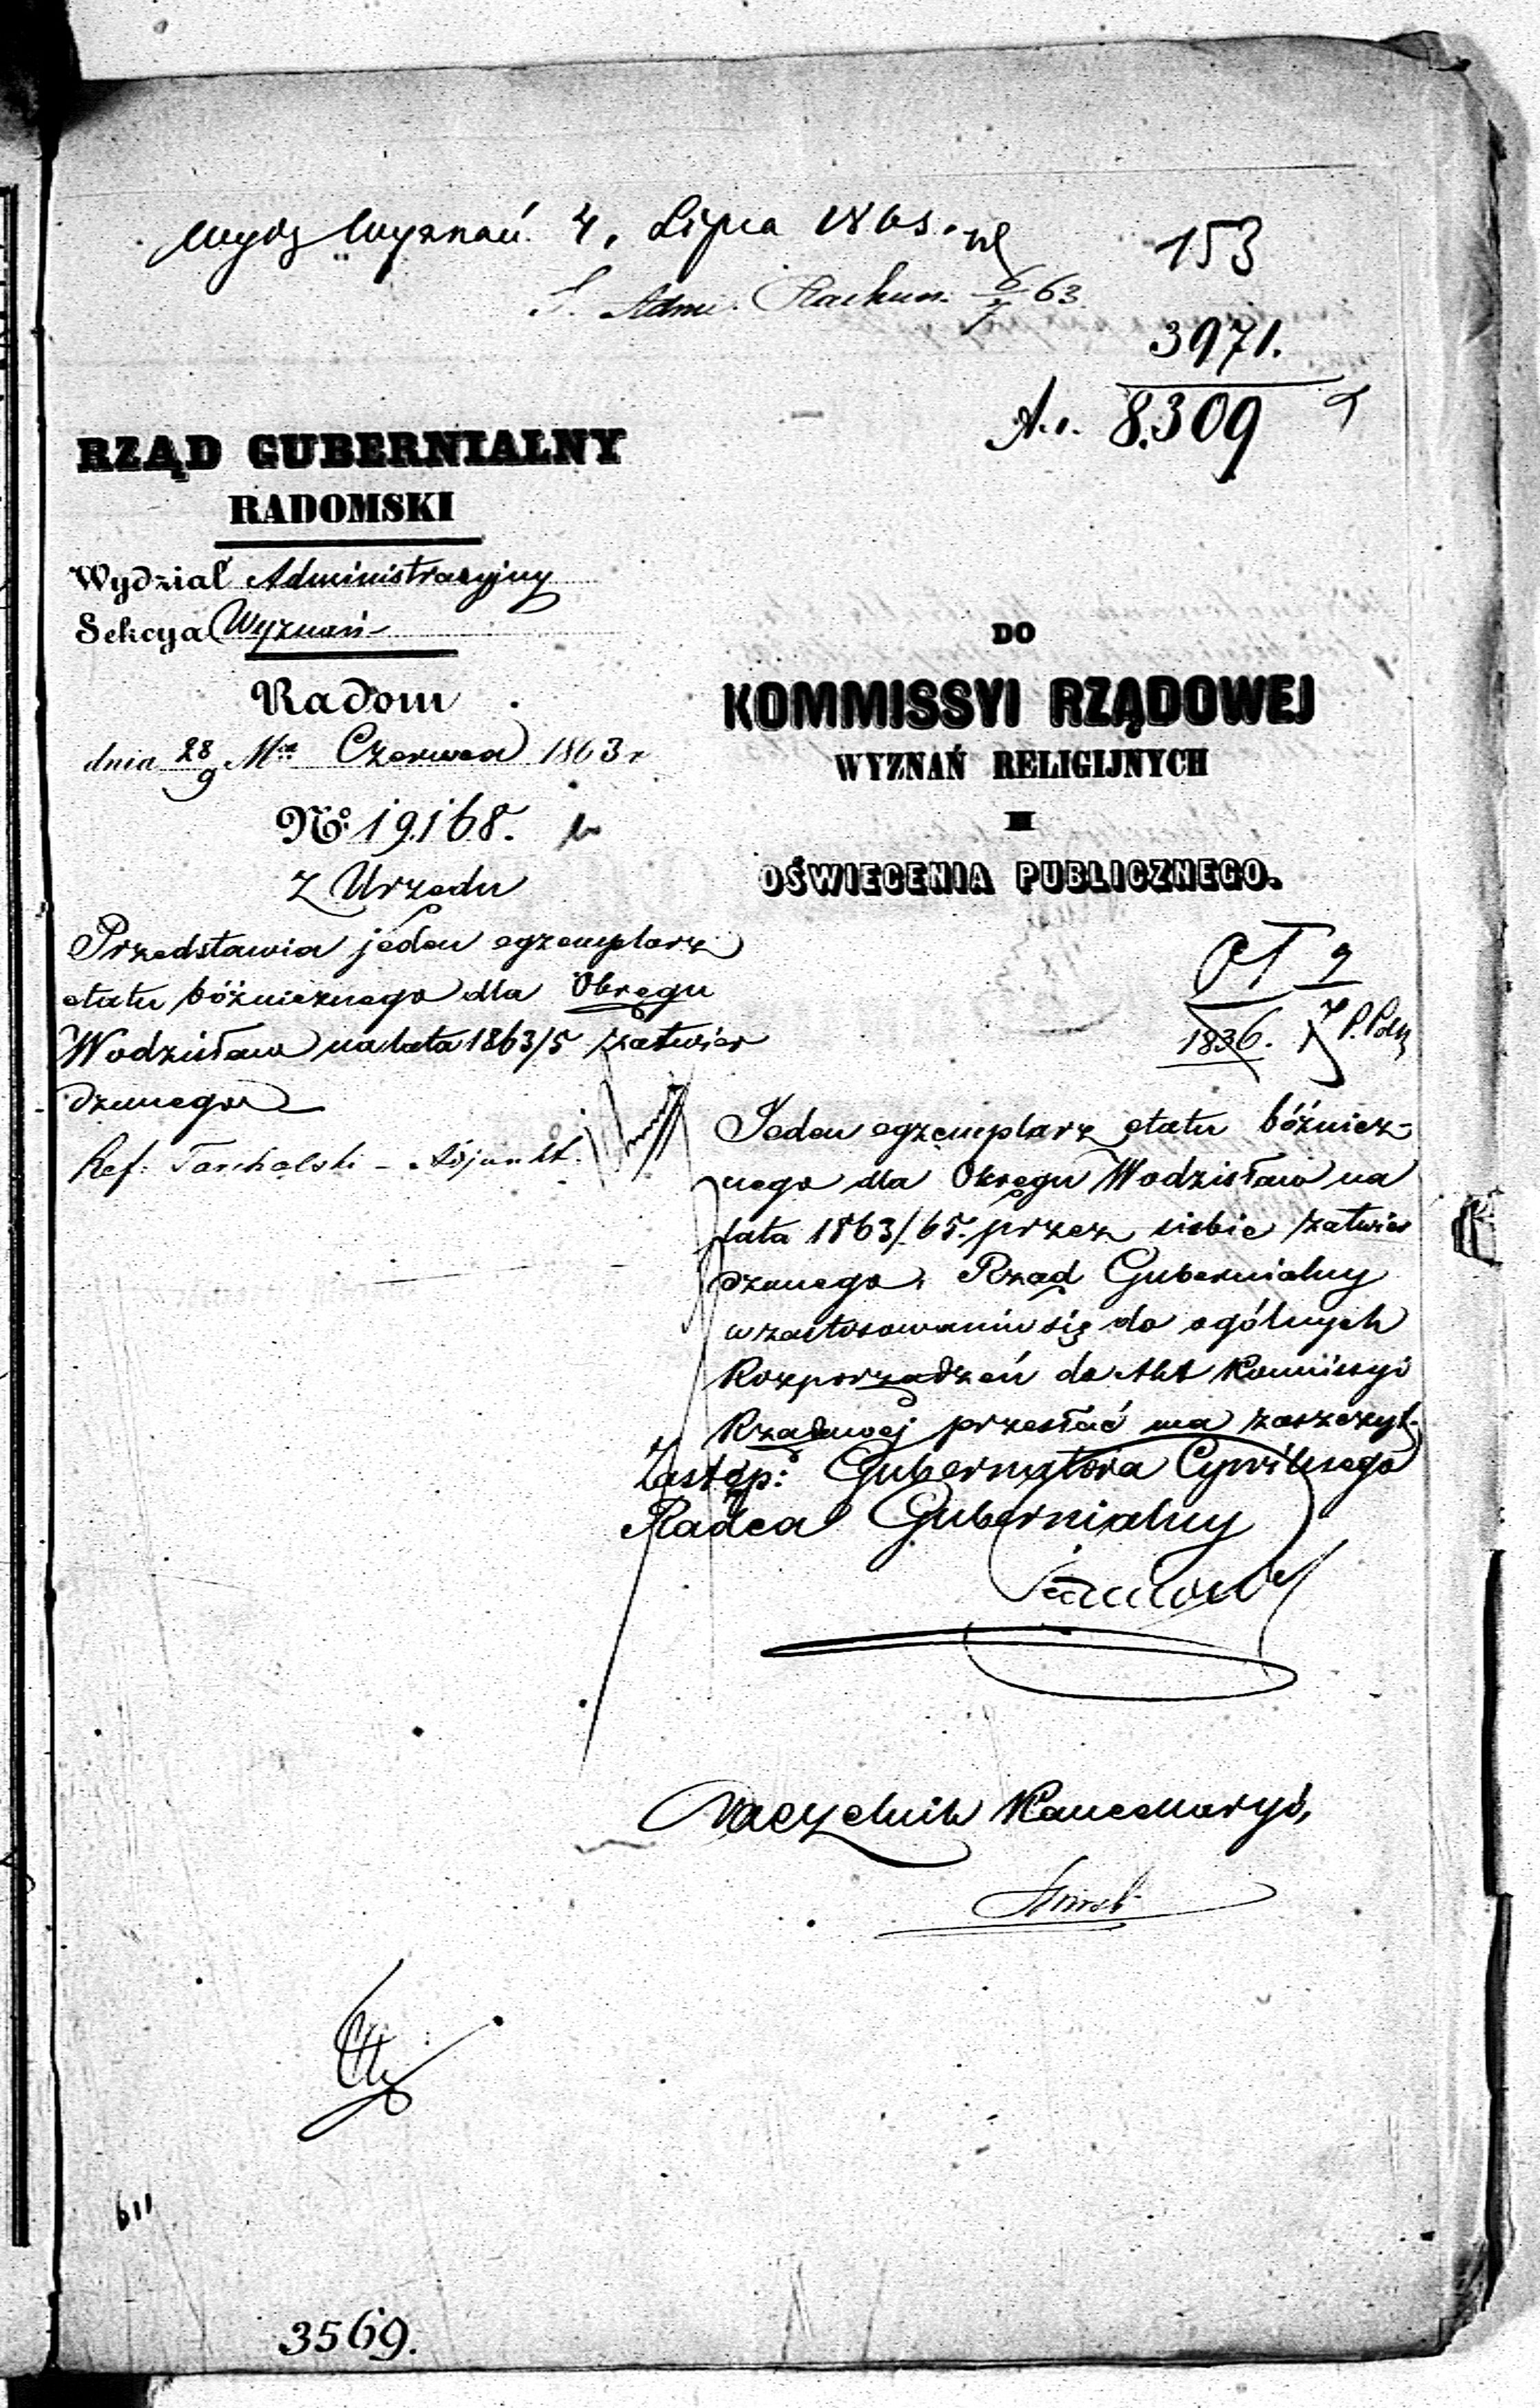 Wydz Wyznań. 4. Lipca 1863.
S. Adm. Rachun. 6/7 63.
153
3971.
8.309
RZĄD GUBERNIALNY
RADOMSKI
Wydział Administracyjny
Sekcya Wyznań
Radom
dnia 28/9 Mca Czerwca 1863 r
No: 19168.
Z Urzędu
Przedstawia jeden egzemplarz
etatu bóżnicznego dla Okręgu
Wodzisław na lata 1863/5 zatwier
dzonego
Ref: Tarchalski - Adjunkt.
DO
KOMMISSYI RZĄDOWEJ
WYZNAŃ RELIGIJNYCH
I
OŚWIECENIA PUBLICZNEGO.
1836.
Jeden egzemplarz etatu bóżnicz-
nego dla Okręgu Wodzisław na
lata 1863/65. przez siebie zatwier
dzonego, Rząd Gubernialny
w zastosowaniu się do ogólnych
Rozporządzeń do Akt Kommissyi
Rządowej przesłać ma zaszczyt.
Zastęp: Gubernatora Cywilnego
Radca Gubernialny
Naczelnik Kancellaryi,
611
3569.